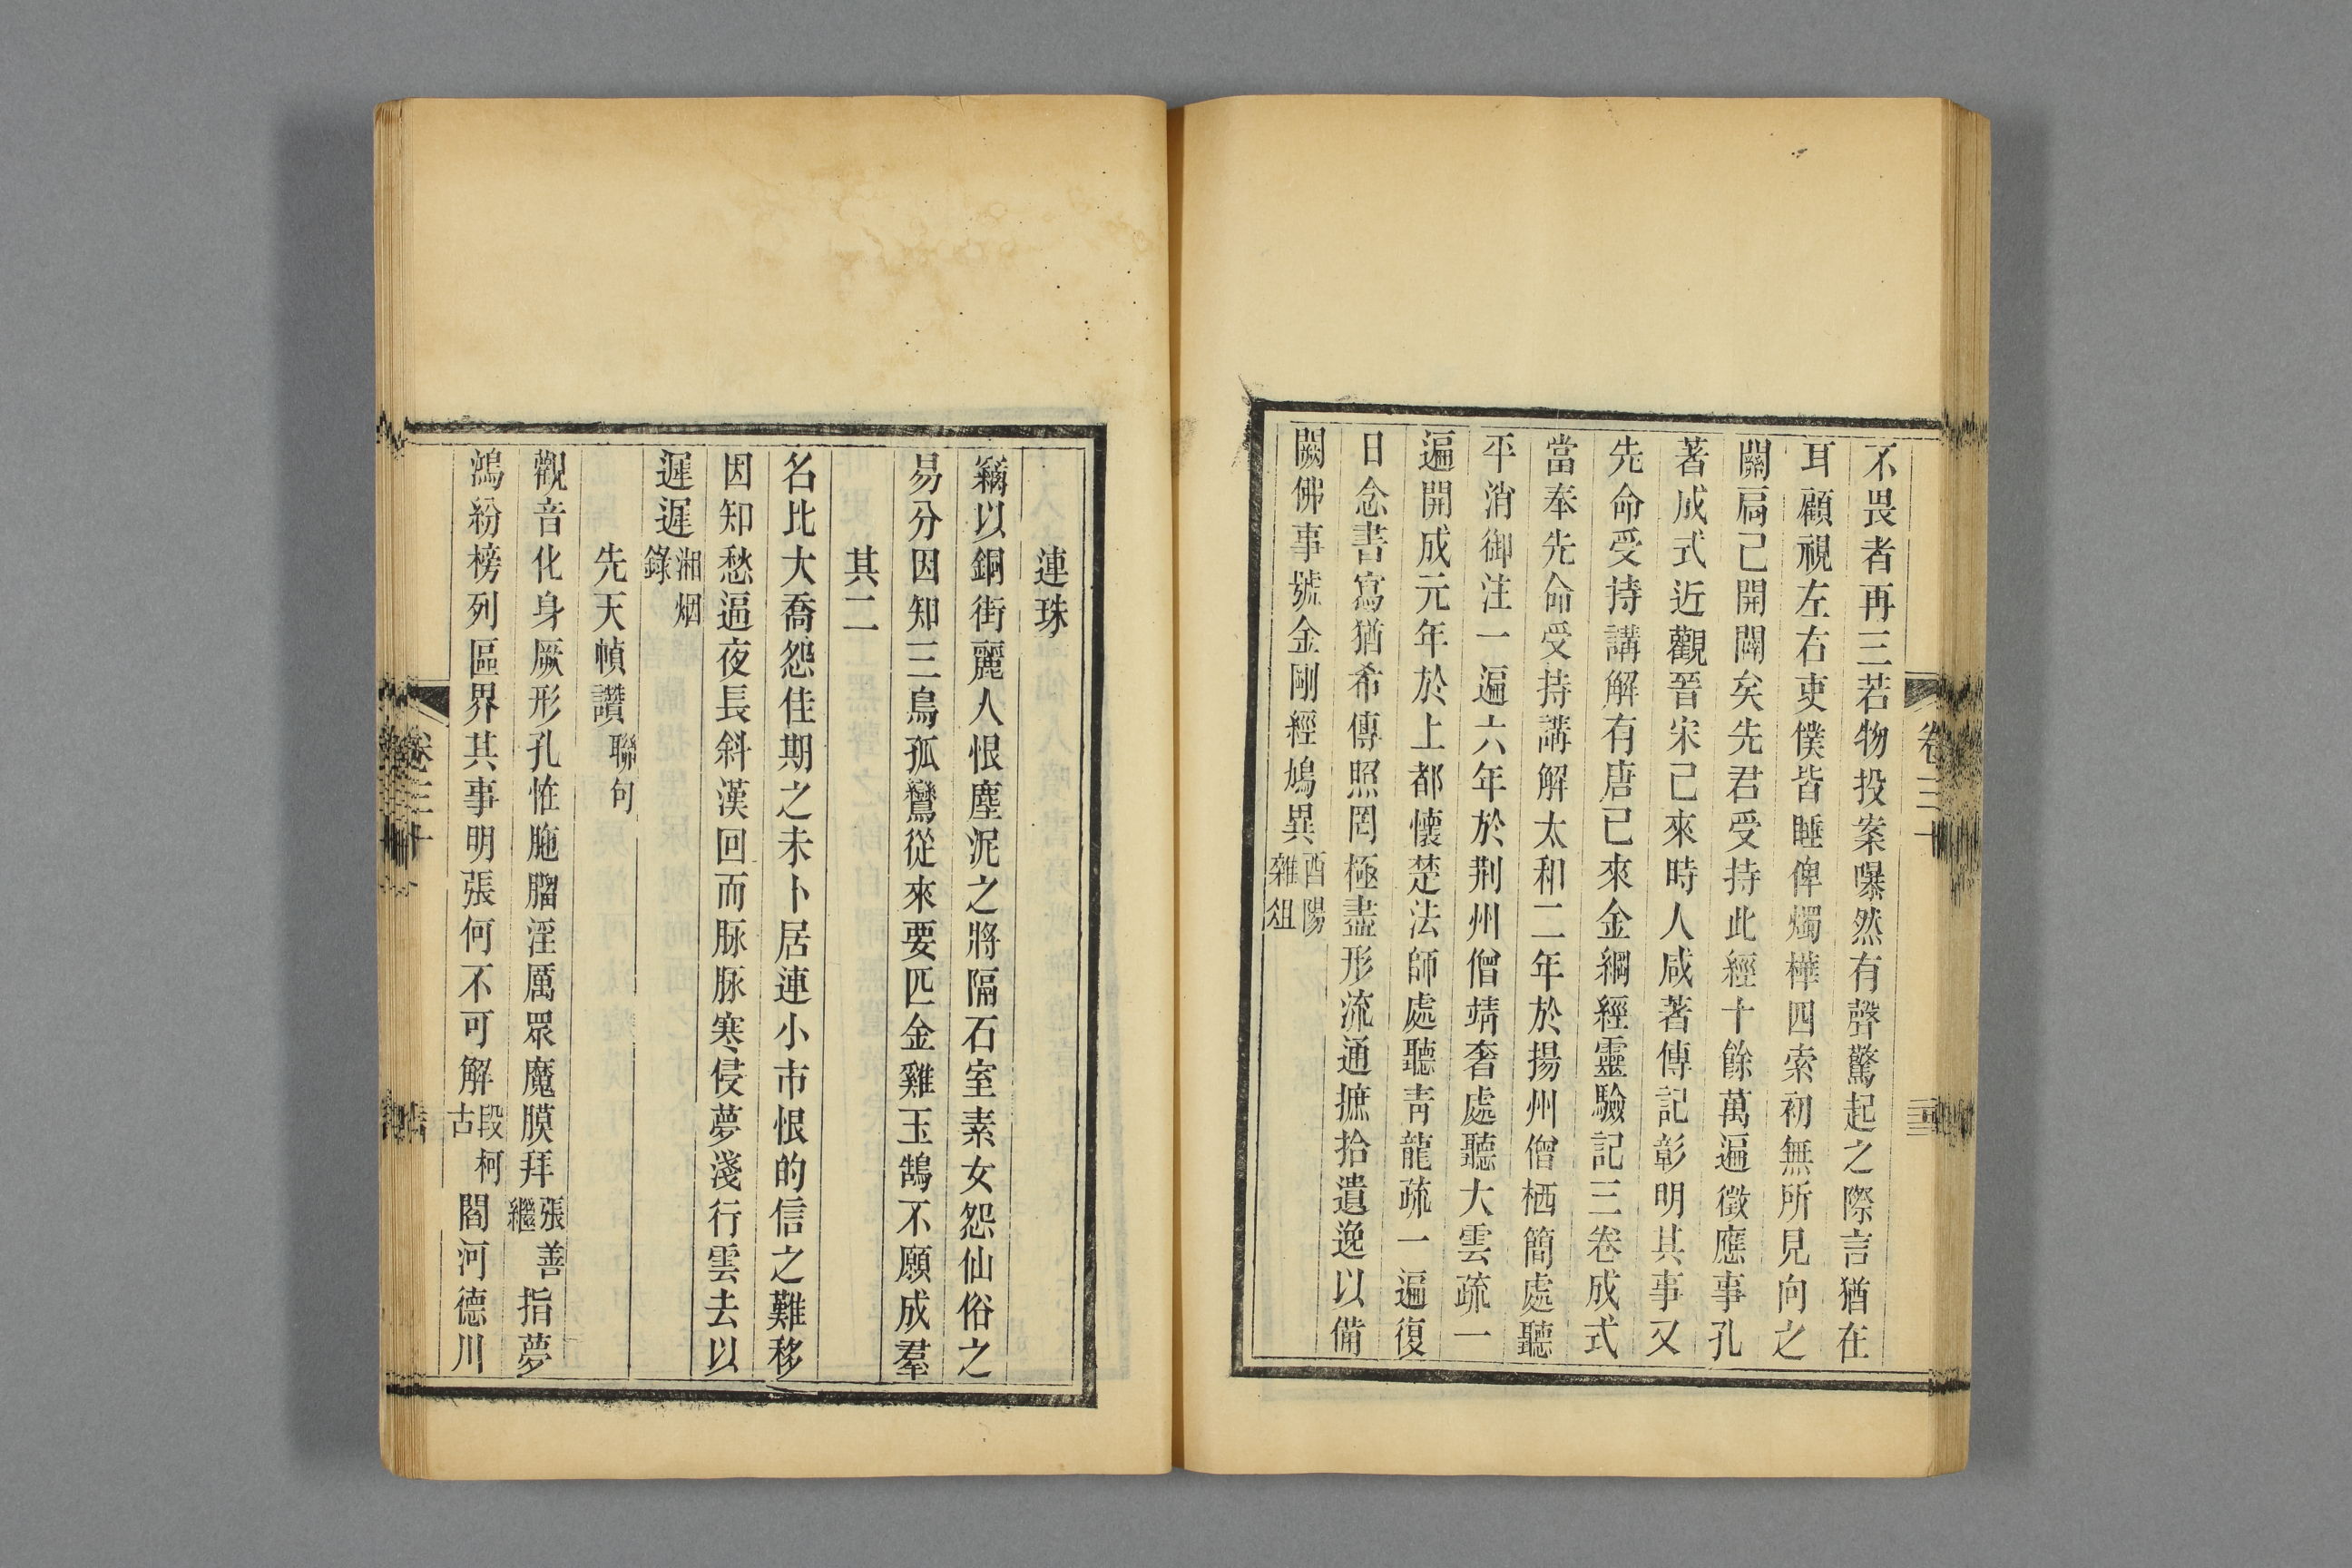 不畏者再三若物投案曝然有聲驚起之際言猶在
耳顧視左右吏僕皆睡俾燭樺四索初無所見向之
關扃已開闢矣先君受持此經十餘萬遍徵應事孔
著成式近觀晉宋已來時人咸著傳記彰明其事又
先命受持講解有唐已來金綱經靈驗記三卷成式
當奉先命受持講解太和二年於揚州僧栖簡處聽
平消御注一遍六年於荆州僧靖奢處聽大雲疏一
遍開成元年於上都懷楚法師處聽靑龍疏一遍復
日念書寫猶希傳照罔極盡形流通摭拾遺逸以備
闕佛事號金剛經鳩異酉陽雜俎
卷三十
連珠
竊以銅街麗人恨塵泥之將隔石室素女怨仙俗之
易分因知三鳥孤鸞從來要匹金雞玉鵠不願成羣
其二
名比大喬怨佳期之未卜居連小市恨的信之難移
因知愁逼夜長斜漢回而脉脉寒侵夢淺行雲去以
遲遲湘烟錄
先天幀讚聯句
觀音化身厥形孔恠胣腦淫厲眾魔膜拜張善繼指夢
鴻紛榜列區界其事明張何不可解段柯古閻河德川
卷三十